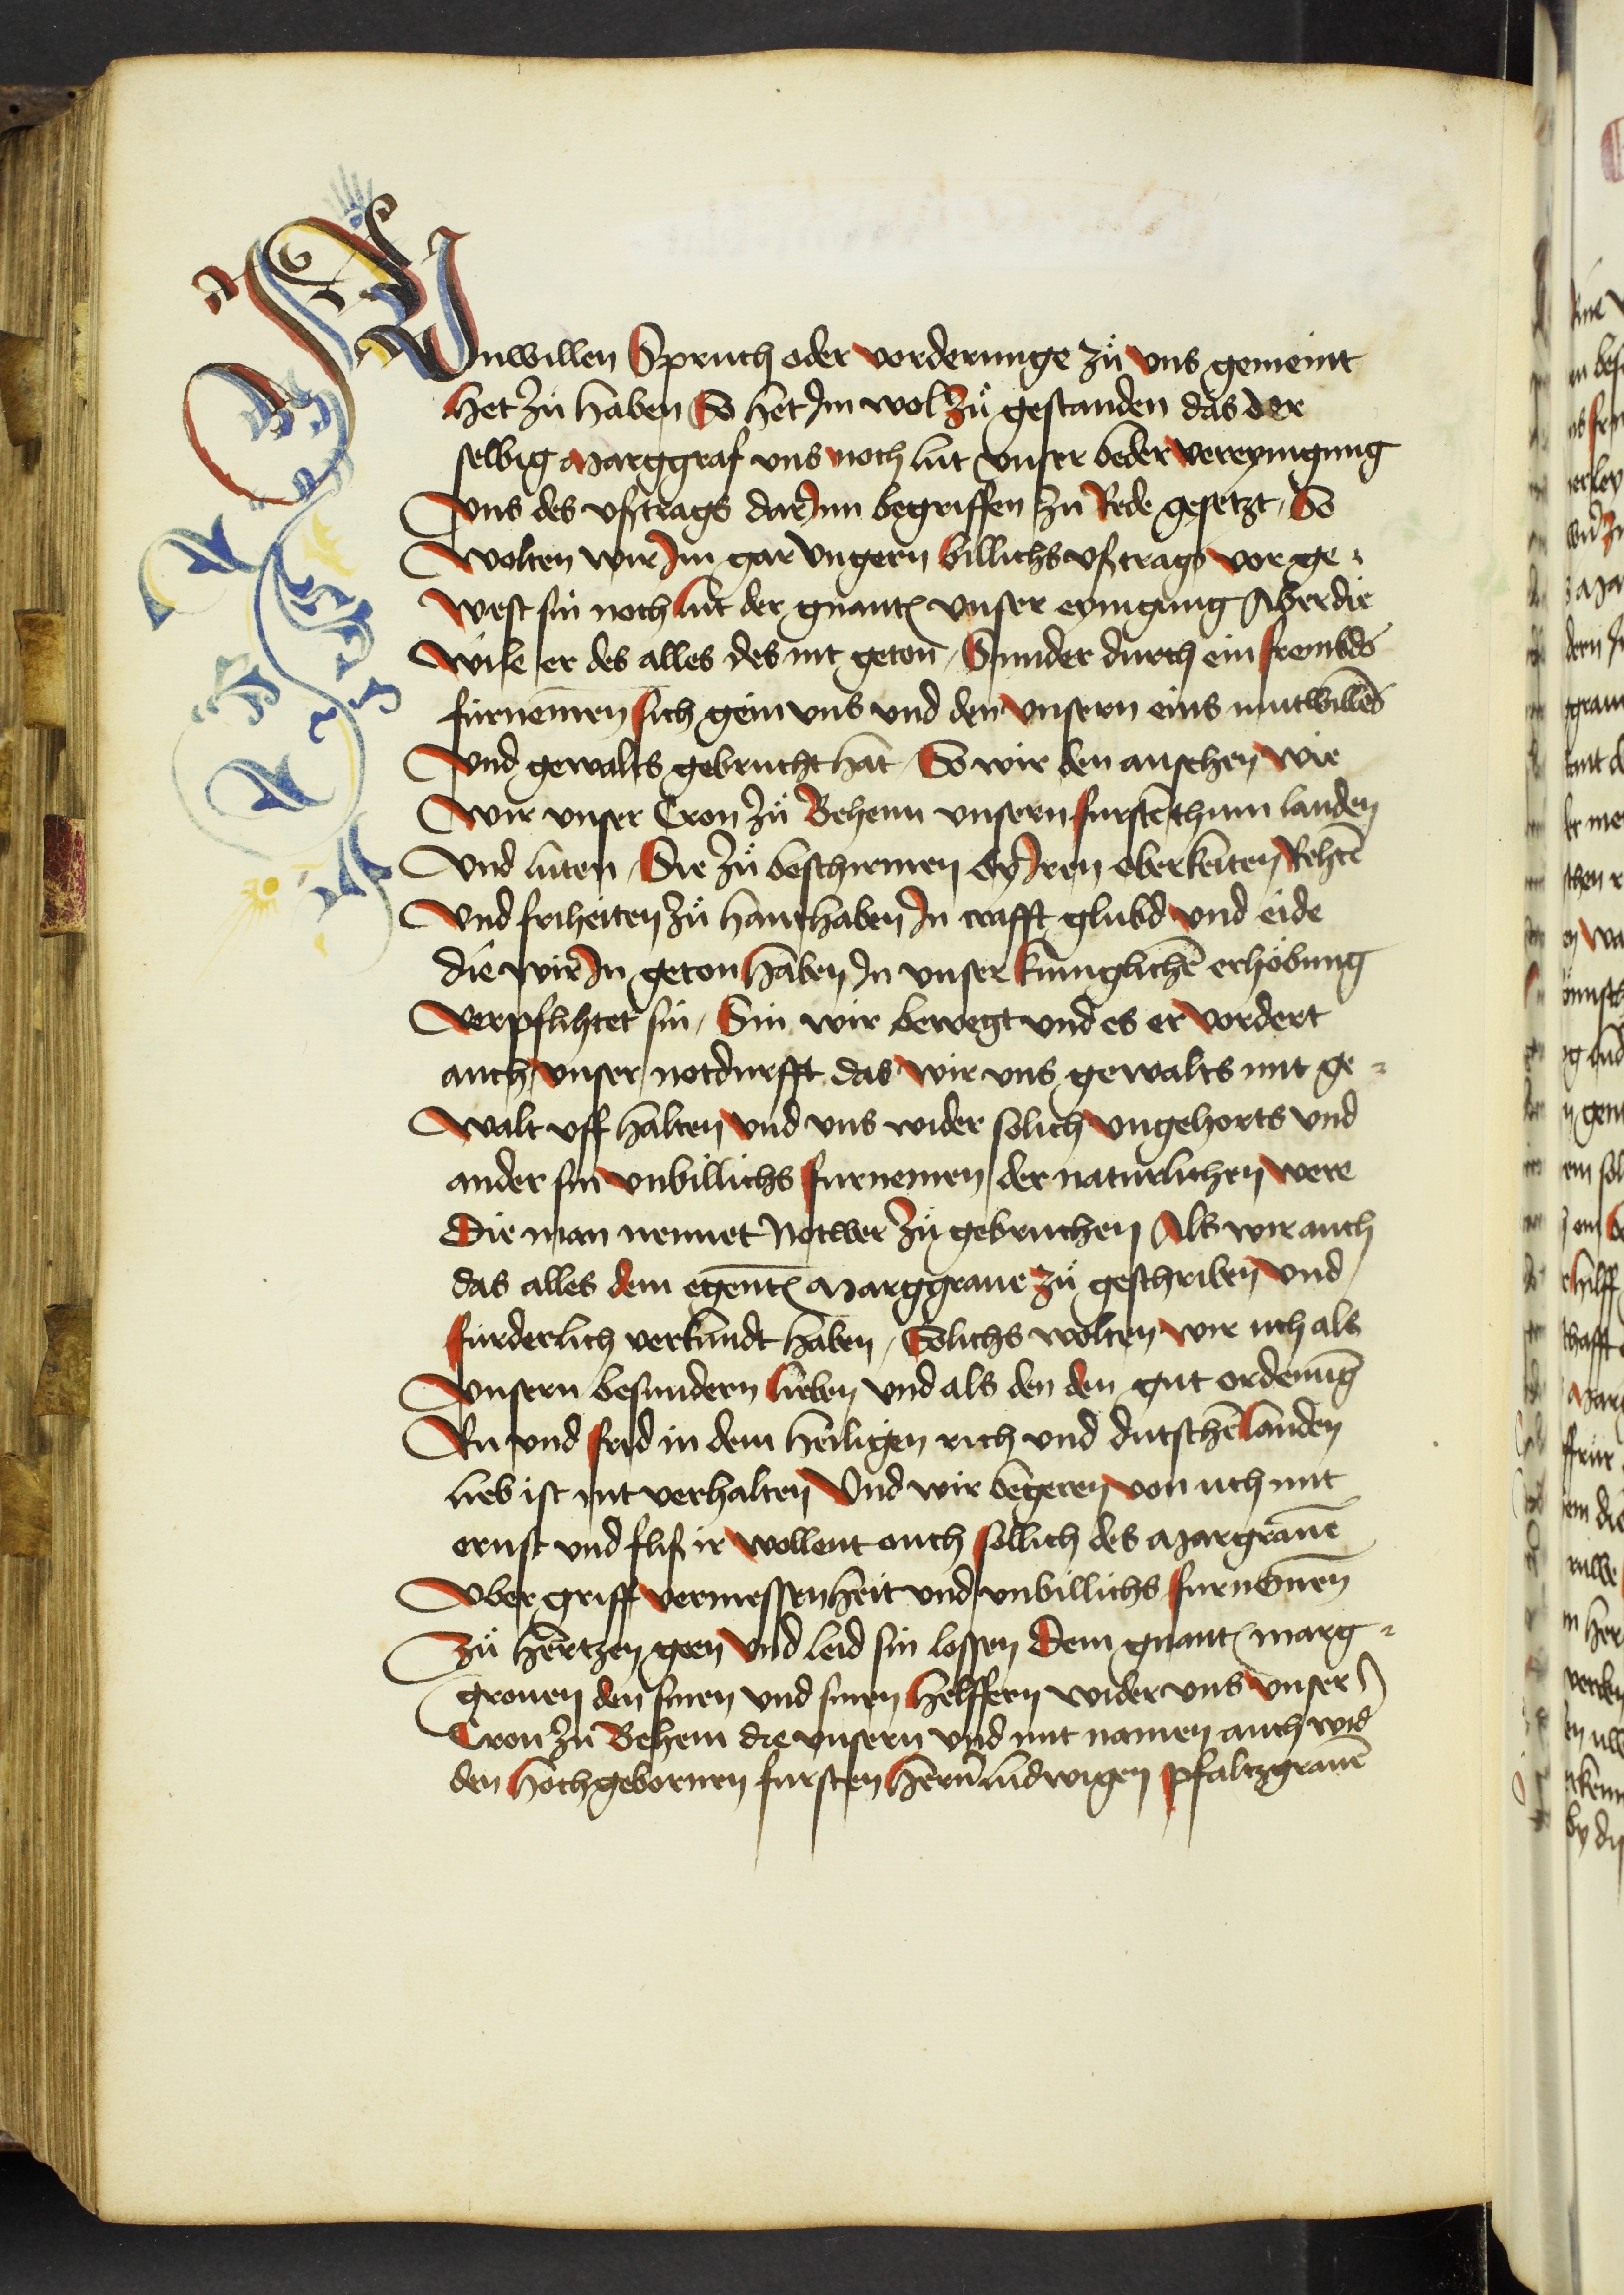 Unwillen Spruch oder vorderunge zů vns gemeint
Het zů haben So het Jm wol zů gestanden das der
selbig Marggraf vns noch lut vnser beder vereynigung
Vns des vftrags dar Jnn begriffen zu Rede gesetzt / So
Wolten wir Jm gar vngern billichs vftrags vor ge¬
West sin noch lut der gnantẽ vnser eynigung Aber die
Wile er des alles des nit geton / Sunder durch ein frembds
fürnemen sich gein vns vnd den vnsern eins mutwillẽs
Vnd gewalts gebrucht hat / So wir den ansehen wie
Wir vnser Cron zů Behem vnsern furstẽthum landen
Vnd luten / Die zů beschirmen by Jren oberkeiten Rehtẽ
Vnd friheiten zů hanthaben Jn crafft glubd vnd eide
die wir Jn geton haben Jn vnser kuniglichẽ erhöbung
Verpflihtet sin / Sin wir bewegt vnd es er vordert
auch vnser notdurfft das wir vns gewalts mit ge¬
Walt vff halten vnd vns wider solich vngehorts vnd
ander sin vnbillichs furnemen der naturlichen were
Die man nennet Notwer zů gebruchen Als wir auch
das alles dem egentẽ Marggraue zů geschriben vnd
fürderlich verkundt haben / Solichs wolten wir uch als
Vnsern besundern lieben vnd als den den gut ordenũg
Ru vnd frid in dem heiligen rich vnd dutschẽ landen
lieb ist nit verhalten Vnd wir begeren von uch mit
ernst vnd fliß ir wollent auch sollich des Margrauẽ
Vber griff vermessenheit vnd vnbillichs furnõmen
Zů hertzen geen vnd leid sin lossen Dem gnantẽ marg¬
grouen den sinen vnd sinen helffern wider vns vnser
Cron zu Behem die vnsern vnd mit namen auch wid
den hochgebornen fursten hern ludwigen pfaltzgrauẽ